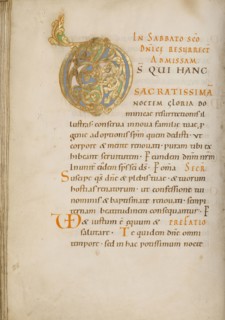 IN SABBATO SCO
DNICE RESURRECT
AD MISSAM
DS QUI HANC
SACRATISSIMA
NOCTEM GLORIA DO
minicae resurrectionis il
lustras conserva in nova familiae tuae p
geniae adoptionis spm quem dedisti ut
corpore & mente renovati puram tibi ex
hibeant servitutem P eundem dnm nrm
SECR
Suscipe qs dne & plebis tuae & tuorum
hostias renatorum ut confessione tui
nominis & baptismate renovati sempi
ternam beatitudinem consequantur P
Vere & iustum e aequum & PREFATIO
salutare Te quidem dne omni
tempore sed in hac potissimum nocte